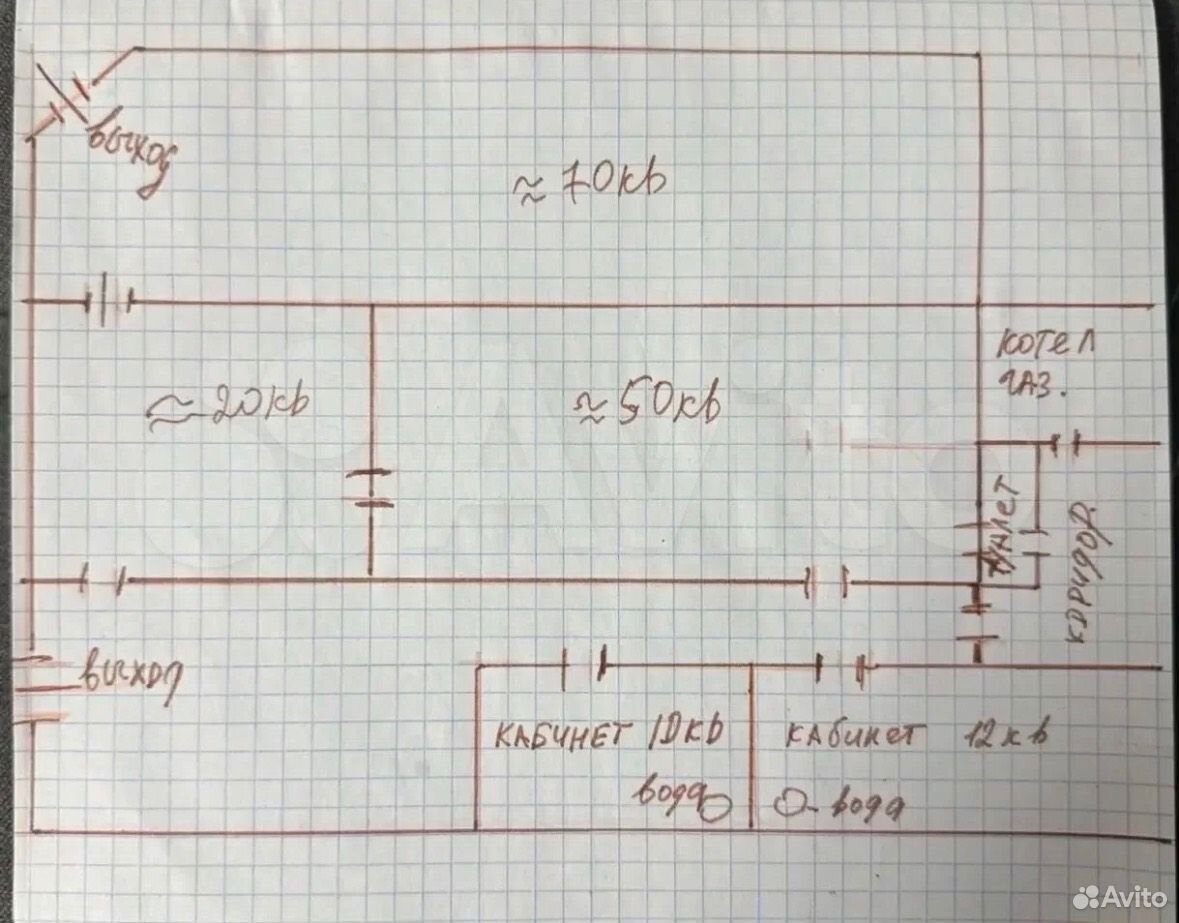 выход
≈ 70кв
котел
газ.
≈ 20кв
≈ 50кв
туалет
коридор
выход
кабинет 10кв
вода
кабинет 12кв
вода
Avito